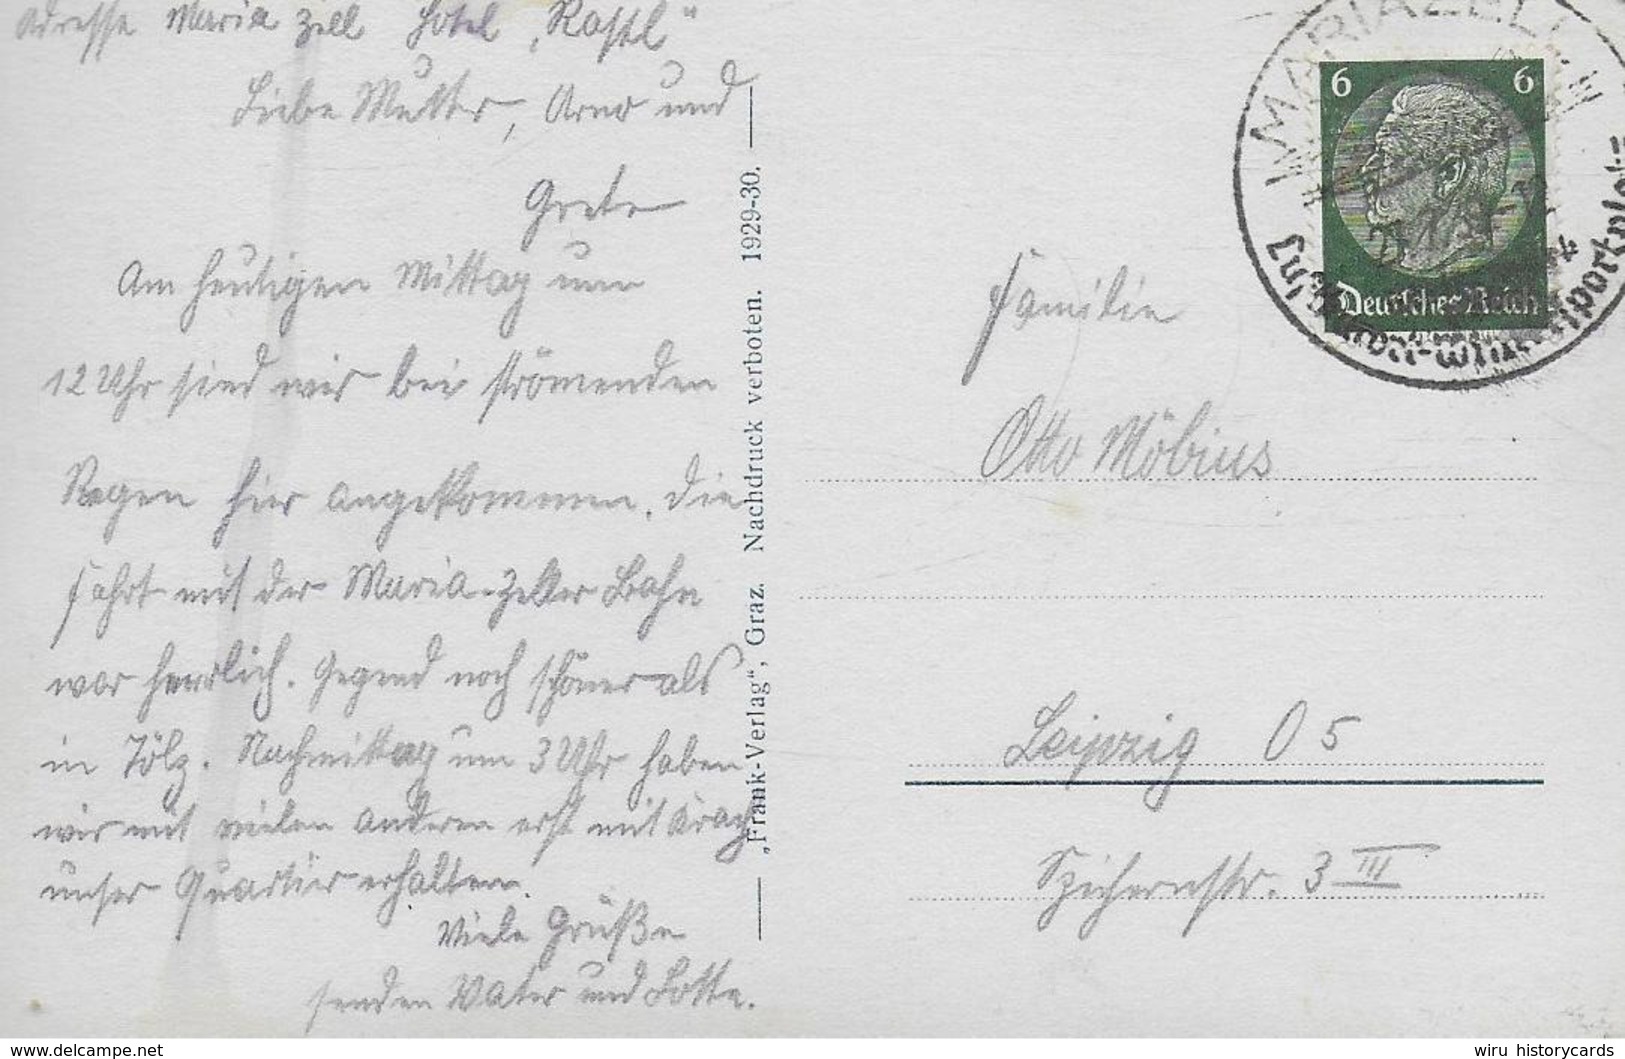 Adresse Maria Zell Hotel „Rastl“
Liebe Mutter, Arno und
Grete
Am heutigen Mittag um
12 Uhr sind wir bei strömenden
Regen hier angekommen. Die
Fahrt mit der Maria-Zeller Bahn
war herrlich. Gegend noch schöner als
in Tölz. Nachmittag um 3 Uhr haben
wir mit vielen anderen erst mit Krach
unser Quartier erhalten.
Viele Grüße
senden Vater und Lotte.
„Frank-Verlag“, Graz. Nachdruck verboten. 1929-30.
MARIAZELL
6 6
Deutsches Reich
Familie
Otto Möbius
Leipzig O 5
Szichernstr. 3 III
wiru historycards
www.delcampe.net